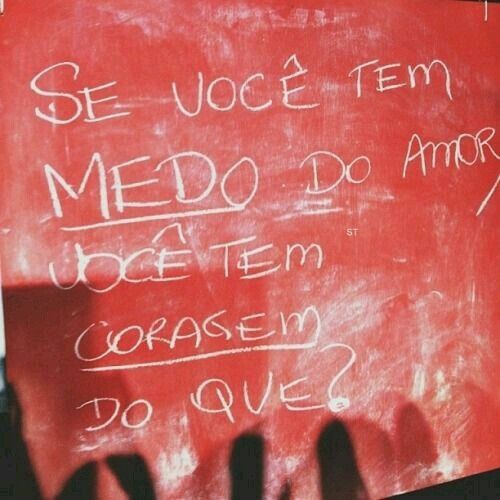 SE VOCÊ TEM
MEDO DO AMOR,
VOCÊ TEM
CORAGEM
DO QUE?
ST